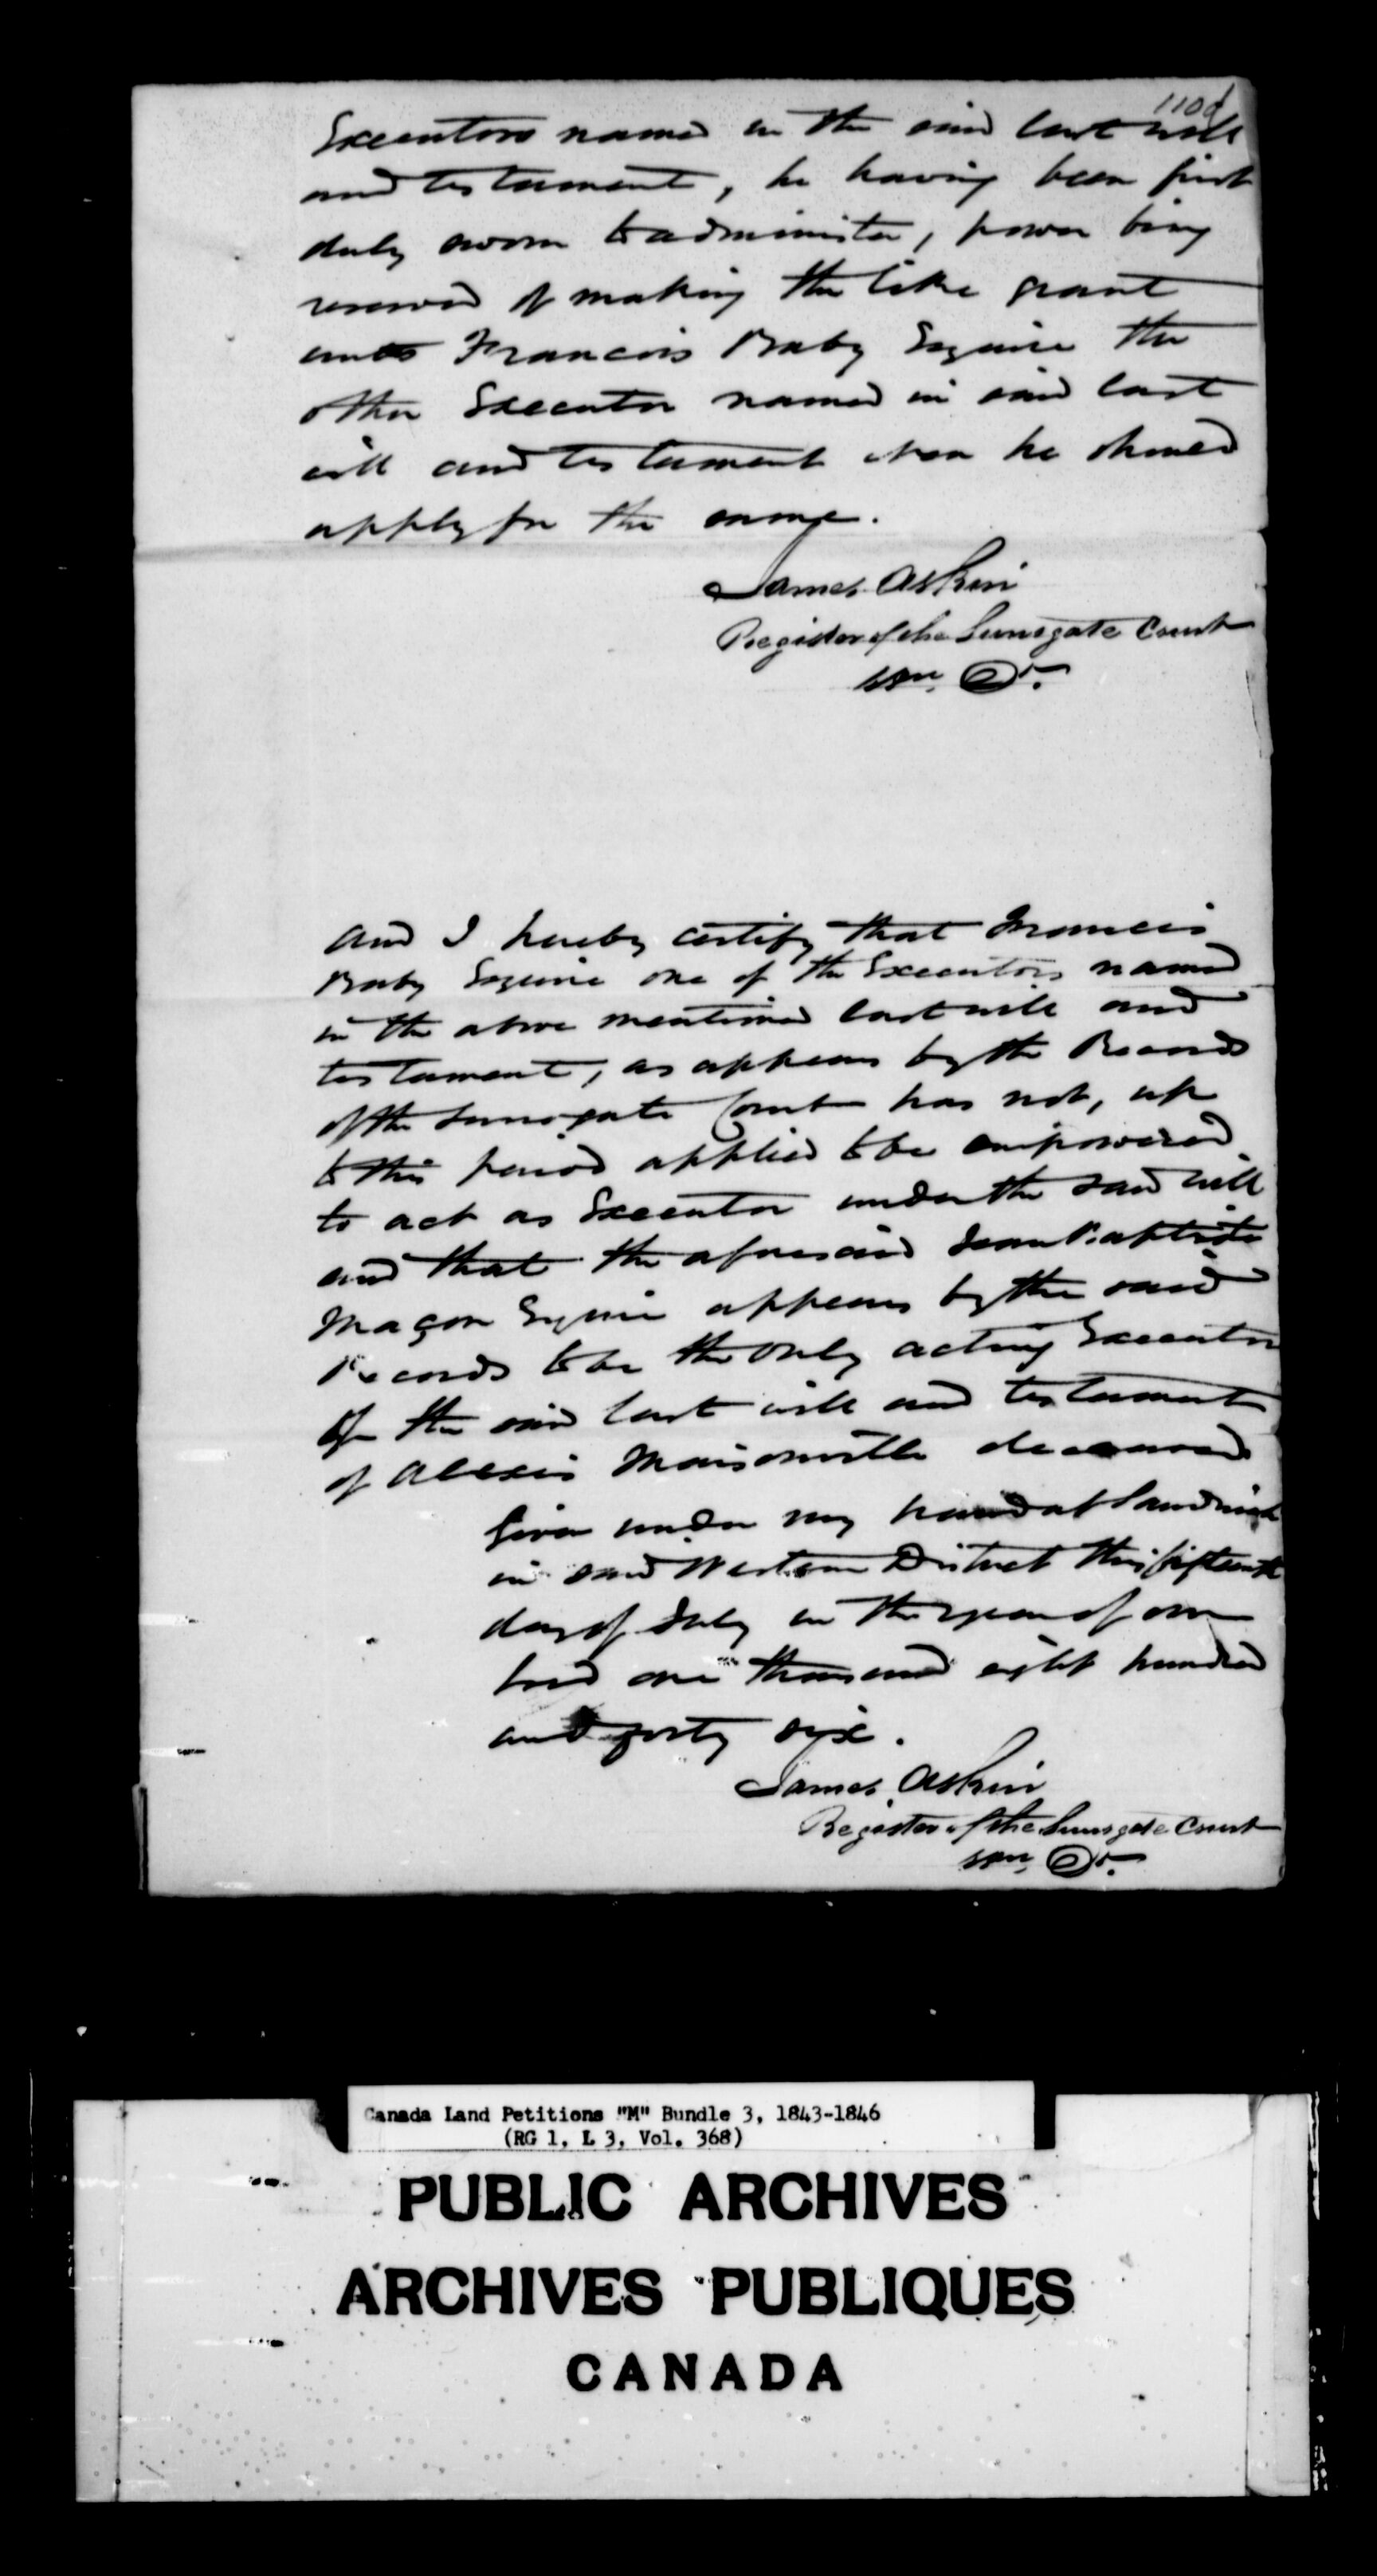 110d
Executors named in the said last will
and testament, he having been first
duly sworn to administer, power being
reserved of making the like grant
unto Francois Baby Esquire the
other Executor named in said last
will and testament when he should
apply for the same.
James Askin
Register of the Surrogate Court
Wn. D.
And I hereby certify that Francois
Baby Esquire one of the Executors named
in the above mentioned last will and
testament, as appears by the Records
of the Surrogate Court has not, up
to this period applied to be empowered
to act as Executor under the said will
and that the aforesaid Jean Baptiste
Maçon Esquire appears by the said
Records to be the only acting Executor
of the said last will and testament
of Alexis Maisonville deceased
Given under my hand at Sandwich
in said Western District this fifteenth
day of July in the year of our
Lord one thousand eight hundred
and forty six.
James Askin
Register of the Surrogate Court
Wn. D.
Canada Land Petitions "M" Bundle 3, 1843-1846
(RG 1, L 3, Vol. 368)
PUBLIC ARCHIVES
ARCHIVES PUBLIQUES
CANADA